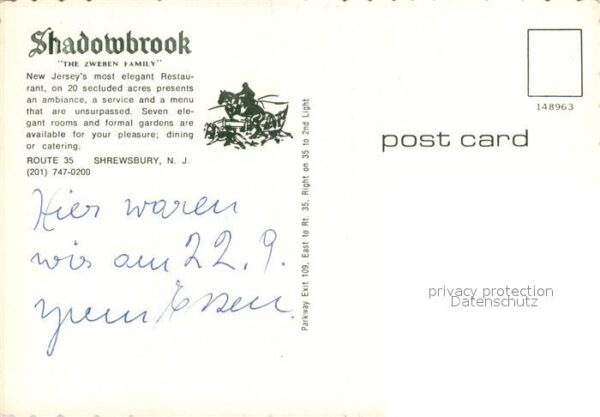 Shadowbrook
"THE ZWEBEN FAMILY"
New Jersey's most elegant Restau-
rant, on 20 secluded acres presents
an ambiance, a service and a menu
that are unsurpassed. Seven ele-
gant rooms and formal gardens are
available for your pleasure; dining
or catering.
ROUTE 35 SHREWSBURY, N. J.
(201) 747-0200
Hier waren
wir am 22. 9.
zum Essen.
Parkway Exit 109, East to Rt. 35, Right on 35 to 2nd Light
148963
post card
privacy protection
Datenschutz